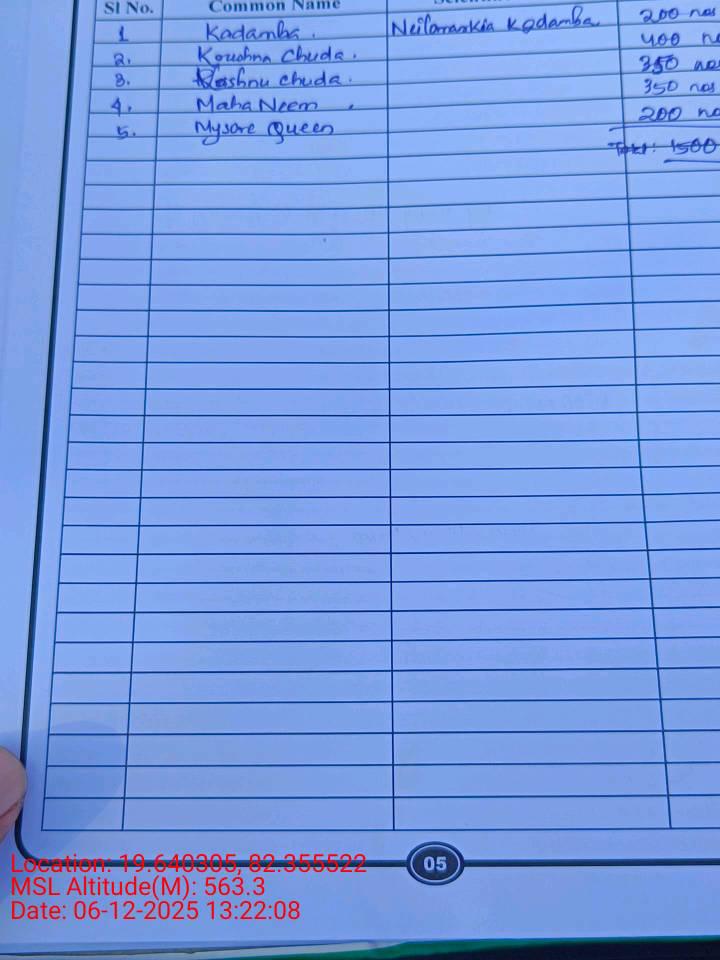 Sl No. Common Name
1 Kadamba. Neilamarkia Kadamba 200 nos
2. Koushna Chuda. 400 n
3. Rashnu chuda. 350 no
4. Maha Neem. 350 nos
5. Mysore Queen 200 no
Total: 1500
05
Location: 19.640305, 82.355522
MSL Altitude(M): 563.3
Date: 06-12-2025 13:22:08